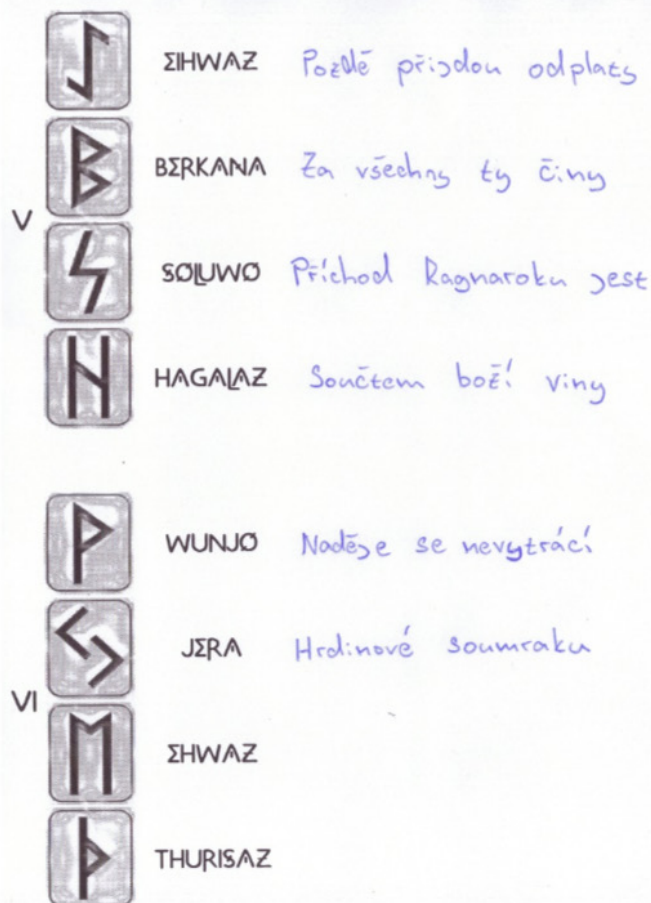 EIHWAZ Pozdě přijdou odplaty
BERKANA Za všechny ty činy
V
SOLUWO Příchod Ragnaroku jest
HAGALAZ Součtem boží viny
WUNJO Naděje se nevytrácí
JERA Hrdinové soumraku
VI
EHWAZ
THURISAZ